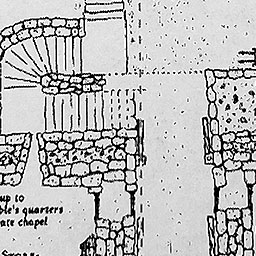 up to
ble's quarters
ate chapel